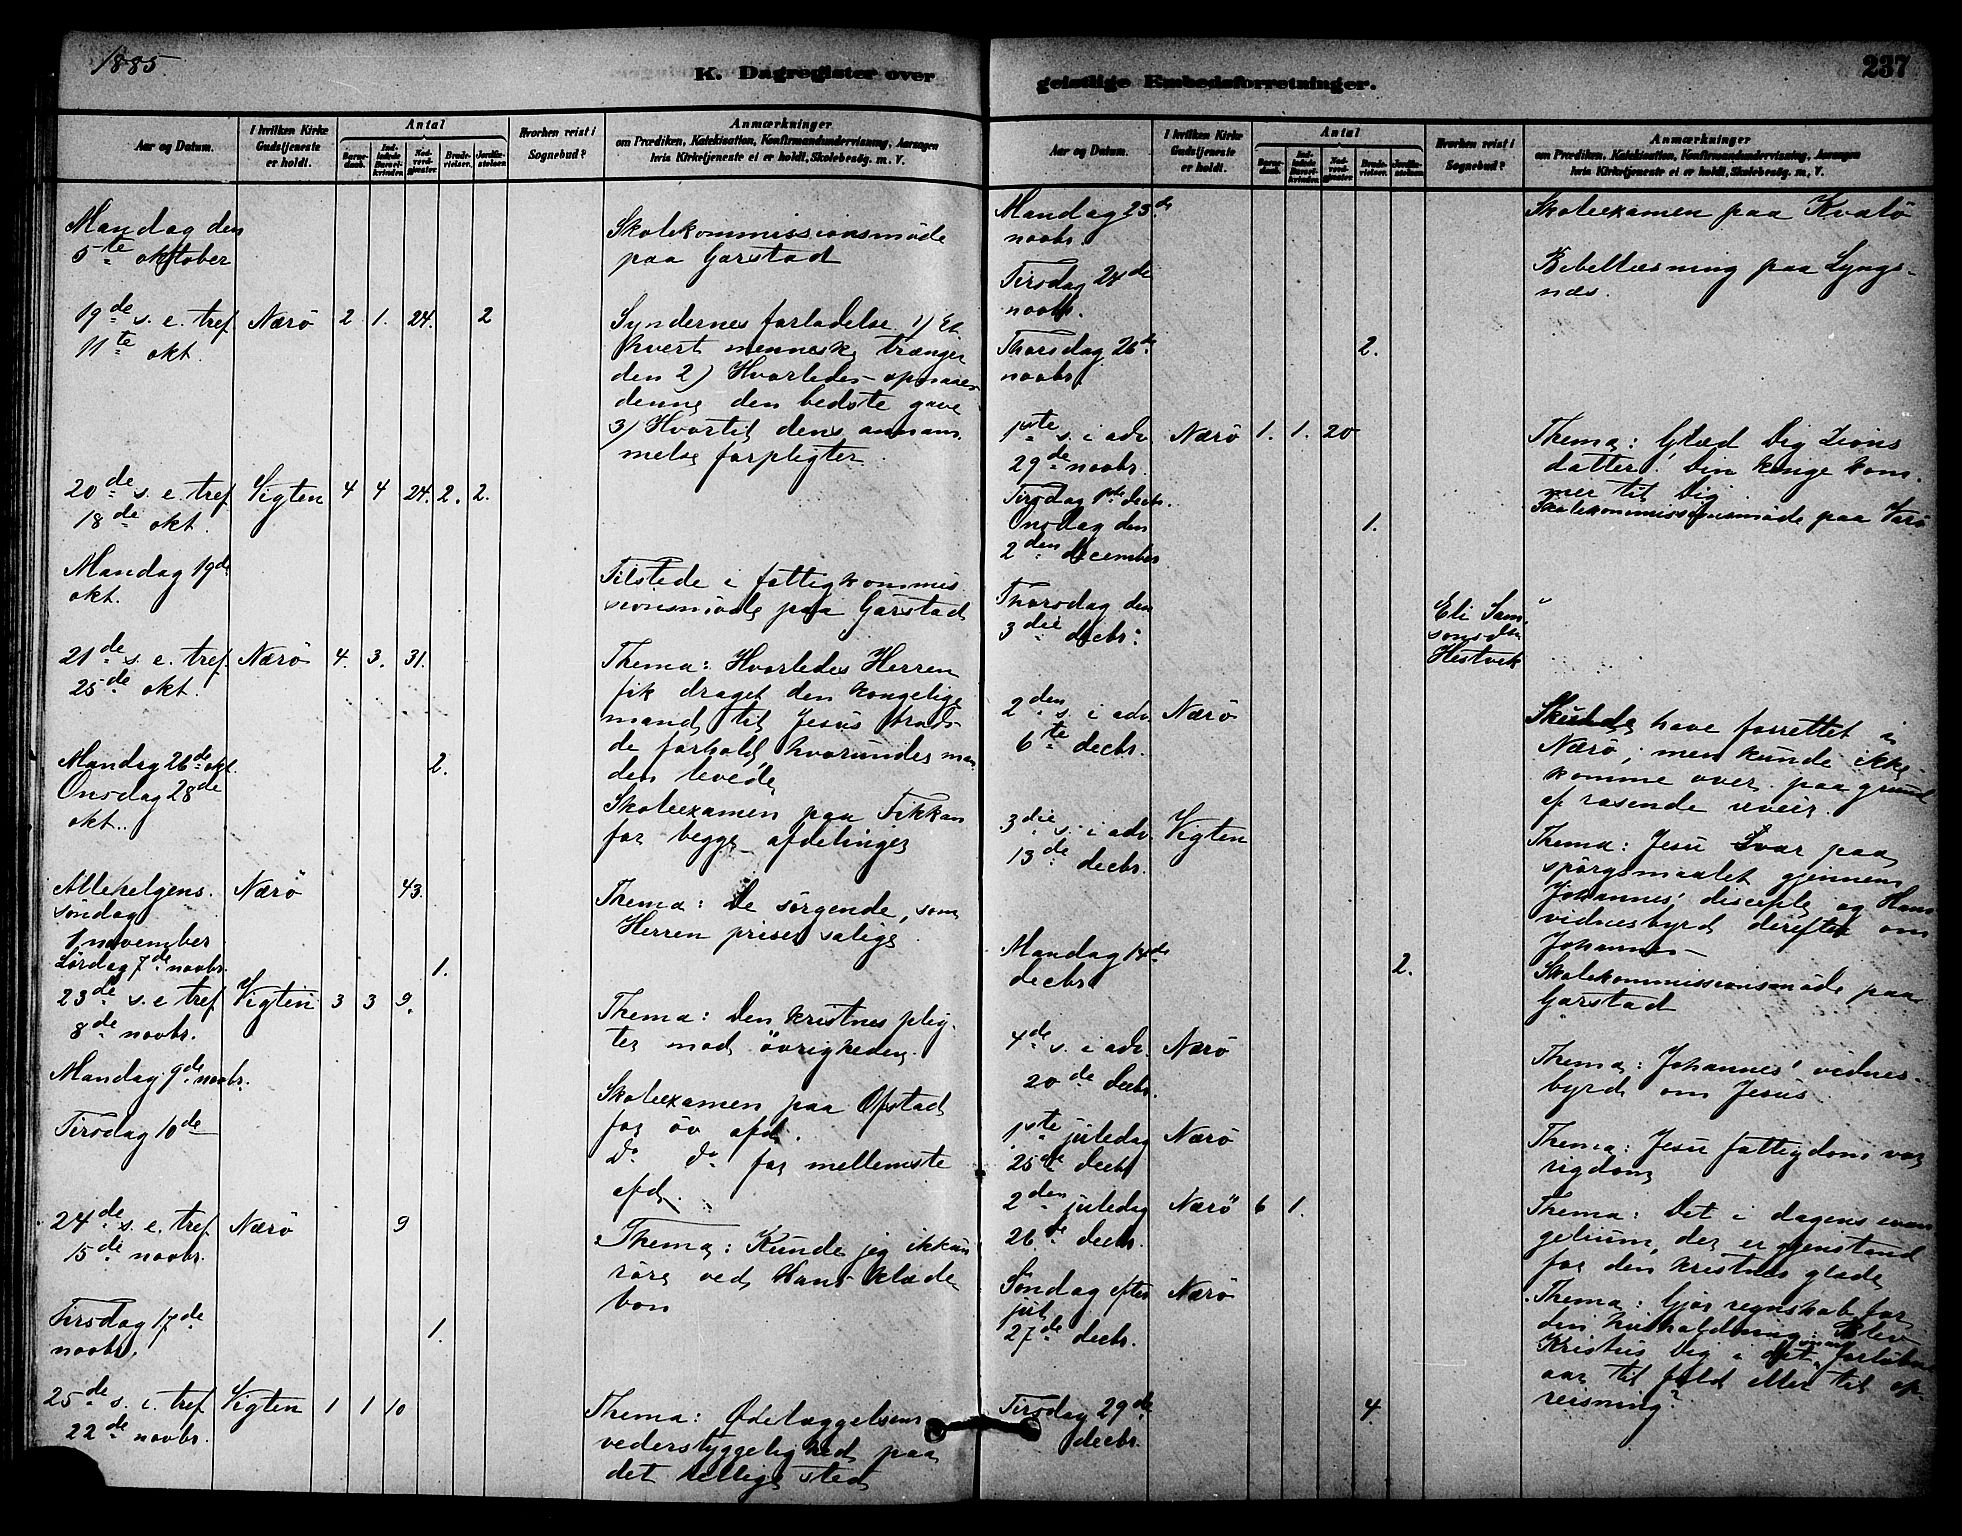 1885.
K. Dagregister over
Aar og Datum.
I hvilken Kirke
Gudstjeneste
er holdt.
Antal
Barne-
daab.
Ind-
ledede
Barsel-
kvinder.
Nad-
verd-
gjester.
Brude-
vielser.
Jordfæ-
stelser.
Hvorhen reist i
Sognebud?
Anmærkninger
om Prædiken, Katekisation, Konfirmandundervisning, Aarsagen
hvis Kirketjeneste ei er holdt, Skolebesøg. m. V.
Mandag den
5te oktober
Skolekommissionsmöde
paa Garstad
19de s. e. tref. Nærö 2 1. 24. 2
11te okt.
Syndernes forladelse 1) Et
hvert menneske trænger
den 2) Hvorledes opnaaes
denne den bedste gave
3) Hvortil dens annam
melse forpligter
20de s. e. tref. Vigten 4 4 24. 2. 2.
18de okt.
Mandag 19de
okt.
Tilstede i fattigkommis
sionsmöde paa Garstad
21de s. e. tref. Nærö 4. 3. 31.
25de okt.
Thema: Hvorledes Herren
fik draget den kongelige
mand til Jesus trods
de forhold, hvorunder man
den levede
Mandag 26de okt. 2.
Onsdag 28de
okt.
Skoleexamen paa Fikkan
for begge afdelinger
Allehelgens. Nærö 43.
söndag
1 november
Thema: De sörgende, som
Herren priser salige
Lördag 7de novbr. 1.
23de s. e tref. Vigten 3 3 9.
8de novbr.
Thema: Den kristnes plig-
ter mod övrigheden.
Mandag 9de novbr.
Skoleexamen paa Ofstad
for öv afd.
Tirsdag 10de
Do do for mellemste
afd.
24de s. e. tref. Nærö 9
15de novbr.
Thema: Kunde jeg ikkun
röre ved Hans klæde
bon
Tirsdag 17de 1.
novbr.
25de s. e. tref. Vigten 1 1 10
22de novbr.
Thema: Ödelæggelsens
vederstyggelighed paa
det hellige sted
237
geistlige Embedsforretninger.
Aar og Datum.
I hvilken Kirke
Gudstjeneste
er holdt.
Antal
Barne-
daab.
Ind-
ledede
Barsel-
kvinder.
Nad-
verd-
gjester.
Brude-
vielser.
Jordfæ-
stelser.
Hvorhen reist i
Sognebud?
Anmærkninger
om Prædiken, Katekisation, Konfirmandundervisning, Aarsagen
hvis Kirketjeneste ei er holdt, Skolebesøg. m. V.
Mandag 23de
novbr.
Skoleexamen paa Kvalö
Tirsdag 24de
novbr.
Bibellæsning paa Lyngs-
næs.
Thorsdag 26de 2.
novbr.
1ste s. i adv. Nærö 1. 1. 20
29de novbr.
Thema: Glæd Dig Zions
datter! Din konge kom-
mer til Dig
Tirsdag 1ste decbr.
Skolekommissionsmöde paa
Onsdag den 1.
2den december
Thorsdag den
3die decbr.
Eli Sam-
sonsdtr
Hestvik
2den s. i adv. Nærö
6te decbr.
Skulde have forrettet i
Nærö, men kunde ikke
komme over paa grund
af rasende uveir.
3die s. i adv. Vigten
13de decbr.
Thema: Jesu Svar paa
spörgsmaalet gjennem
Johannes' disciple og Hans
vidnesbyrd derefter om
Johannes
Mandag 14de 2.
decbr
Skolekommissionsmöde paa
Garstad
4de s. i adv. Nærö
20de decbr.
Thema: Johannes' vidnes-
byrd om Jesus
1ste juledag Nærö
25de decbr
Thema: Jesu fattigdom vor
rigdom
2den juledag Nærö 6 1.
26de decbr.
Thema: Det i dagens evan
gelium, der er gjenstand
for den kristnes glæde
Söndag efter Nærö
jul
27de decbr.
Thema: Gjör regnskab for
din husholdning: Blev
Kristus Dig i det omme forlöbne
aar til fald eller til op-
reisning?
Tirsdag 29de 4.
decbr.